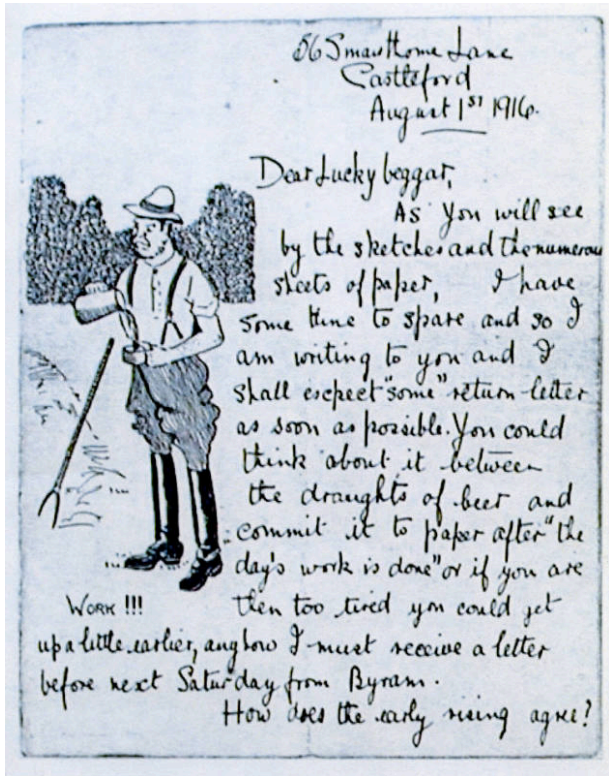 56 Smawthorne Lane
Castleford
August 1st 1916.
Dear Lucky beggar,
As you will see
by the sketches and the numerous
sheets of paper, I have
some time to spare and so I
am writing to you and I
shall expect "some" return letter
as soon as possible. You could
think about it between
the draughts of beer and
commit it to paper after "the
day's work is done" or if you are
WORK !!! then too tired you could get
up a little earlier, anyhow I must receive a letter
before next Saturday from Byram.
How does the early rising agree?